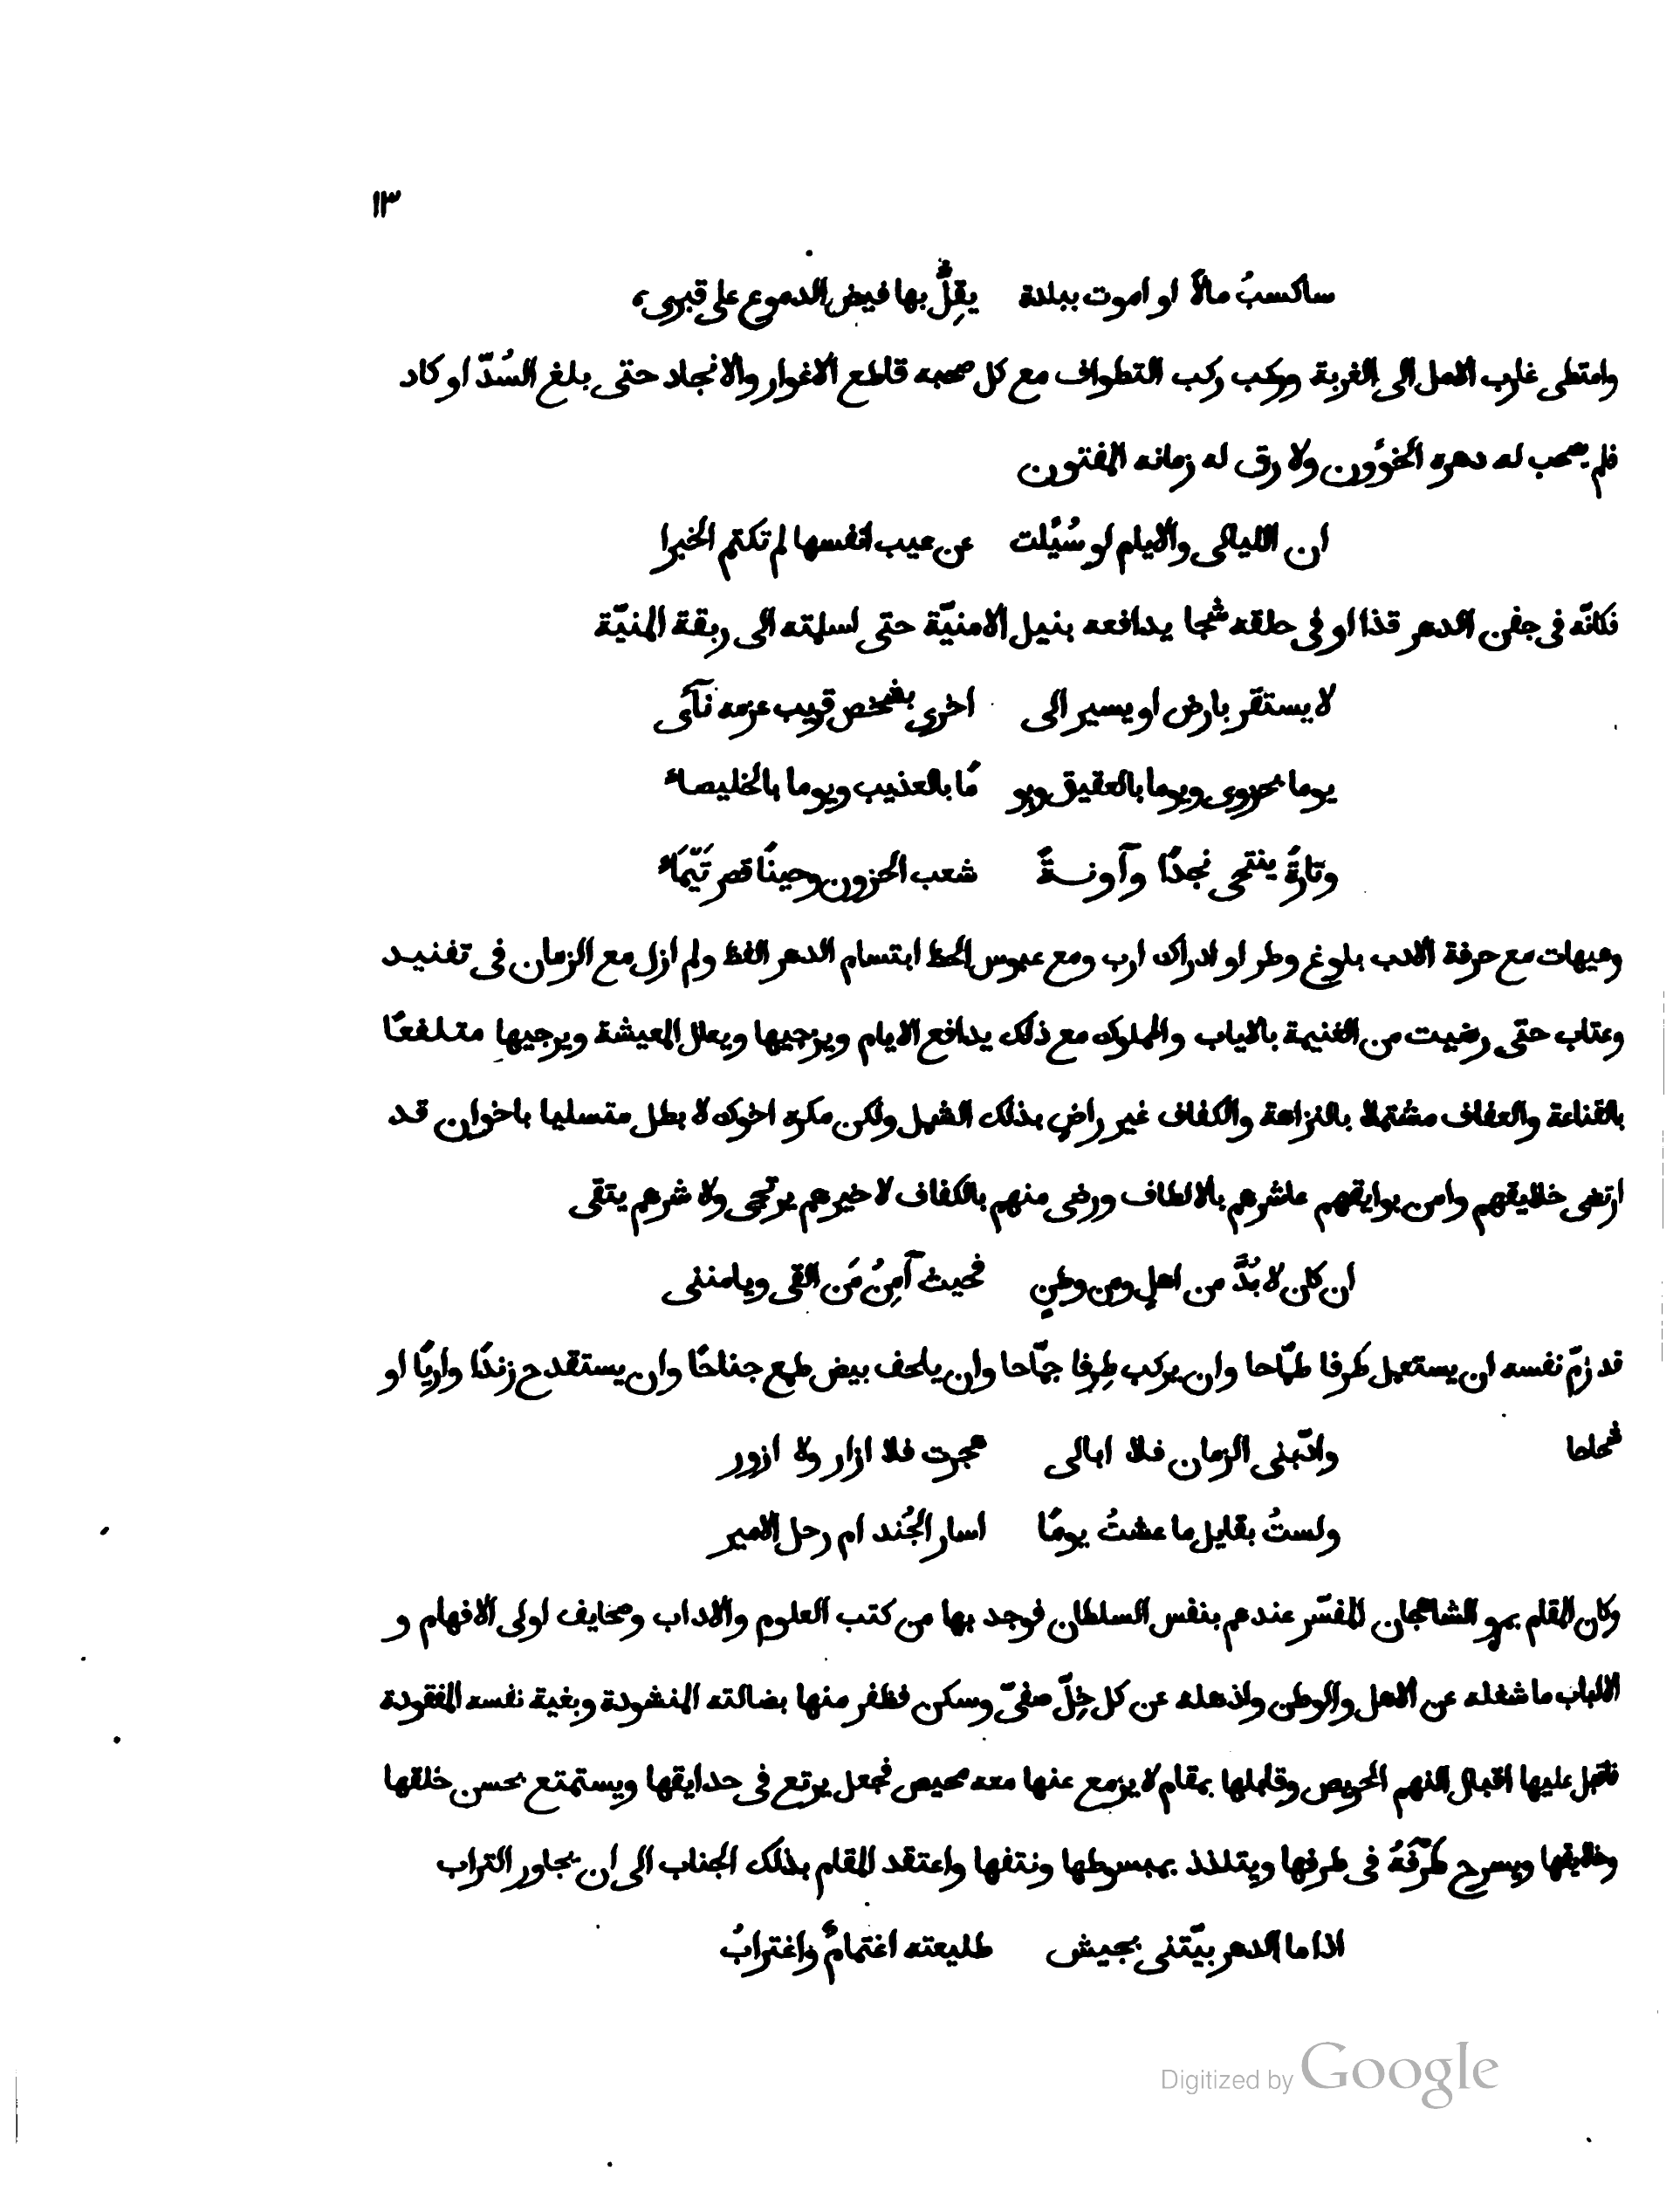 ١٣
ساكسبُ مالًا او اموت ببلدة يقِلُّ بها فيض الدموع على قبرى
وامتطى غارب الامل الى الغربة وركب ركب التطواف مع كل صحبه قاطع الاغوار والانجاد حتى بلغ السُدّ او كاد
فلم يصحب له دهره الخؤون ولا رق له زمانه المفتون
ان الليالى والايام لو سُئِلت عن عيب انفسها لم تكتم الخبرا
فكانّه فى جفن الدهر قذا او فى حلقه شجا يدافعه بنيل الامنيّة حتى اسلمته الى ربقة المنيّة
لا يستقر بارض او يسير الى اخرى بشخص قريب عزمه نآى
يوما بحزوى ويوما بالعقيق ويو مًا بالعذيب ويوما بالخليصاء
وتارةً ينتحى نجدًا وآونـةً شعب الحزون وحينًا قصر تَيّمَاء
وهيهات مع حرفة الادب بلوغ وطر او ادراك ارب ومع عبوس الحظ ابتسام الدهر الفظ ولم ازل مع الزمان فى تفنيد
وعتاب حتى رضيت من الغنيمة بالاياب والمملوك مع ذلك يدافع الايام ويزجيها ويعلل المعيشة ويرجيها متلفعًا
بالقناعة والعفاف مشتملا بالنزاهة والكفاف غير راضٍ بذلك الشمل ولكن مكره اخوك لا بطل متسليا باخوان قد
ارتضى خلايقهم وامن بوايقهم عاشرهم بالالطاف ورضى منهم بالكفاف لا خيرهم يرتجى ولا شرهم يتقى
ان كان لا بُدَّ من اهلٍ ومن وطنٍ فحيث آمِنُ مَن القى ويامننى
قد زمّ نفسه ان يستعمل طَرفا طمّاحا وان يركب طِرفا جمّاحا وان يلحف بيض طمع جناحًا وان يستقدح زندًا واريًا او
شحاحا وادّبنى الزمان فلا ابالى هجرت فلا ازار ولا ازور
ولستُ بقايل ما عشتُ يومًا اسار الجُند ام رحل الامير
وكان المقام بمرو الشاهجان المفسّر عندهم بنفس السلطان فوجد بها من كتب العلوم والاداب وصحايف اولى الافهام و
الالباب ما شغله عن الاهل والوطن واذهله عن كل خِلّ صفىّ وسكن فظفر منها بضالته المنشودة وبغية نفسه المفقودة
فاقبل عليها اقبال النهم الحريص وقابلها بمقام لا يزمع عنها معه محيص فجعل يرتع فى حدايقها ويستمتع بحسن خلقها
وخلايقها ويسرح طَرْفَهُ فى طرفها ويتلذذ بمبسوطها ونتفها واعتقد المقام بذلك الجناب الى ان يجاور التراب
اذا ما الدهر بيّتنى بجيش طليعته اغتمامٌ واغترابُ
Digitized by Google